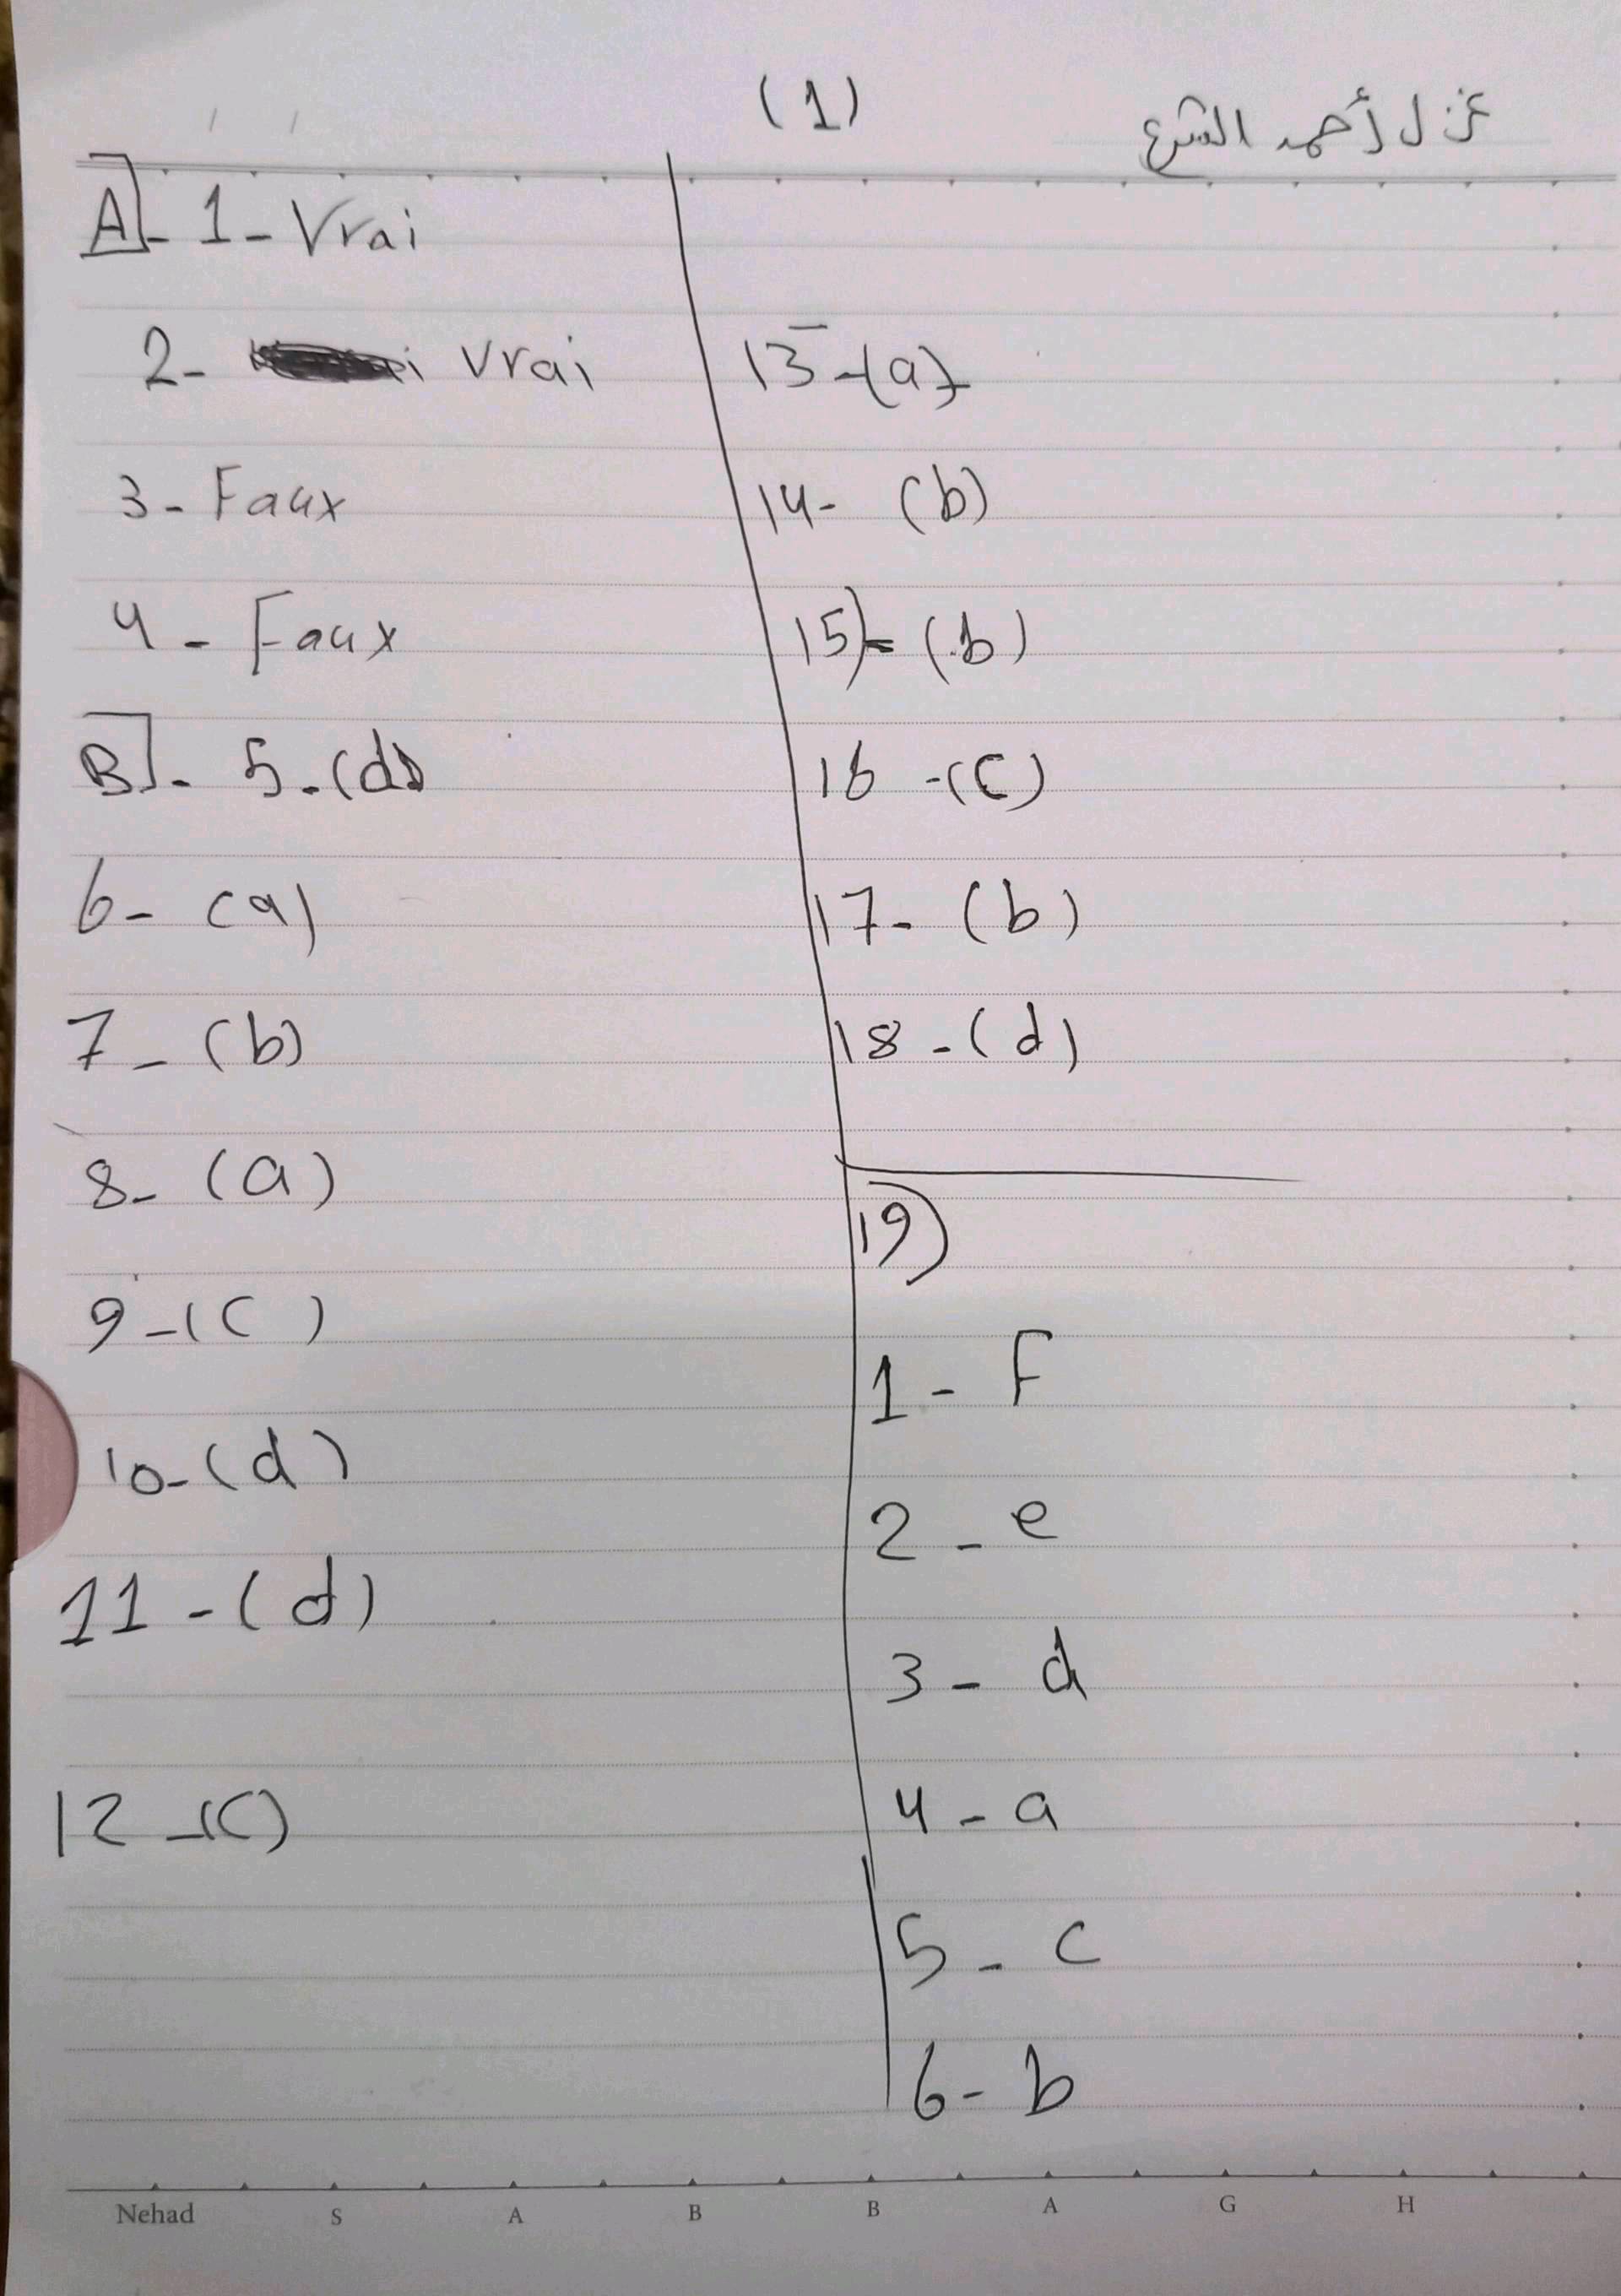 (1)
غزل أحمد الشرع
A]- 1- Vrai
2- vrai
3- Faux
4- Faux
B]- 5-(d)
6- (a)
7- (b)
8- (a)
9-(c)
10-(d)
11-(d)
12-(c)
13-(a)
14- (b)
15)- (b)
16 -(c)
17- (b)
18-(d)
19)
1- F
2- e
3- d
4- a
5- c
6- b
Nehad S A B B A G H